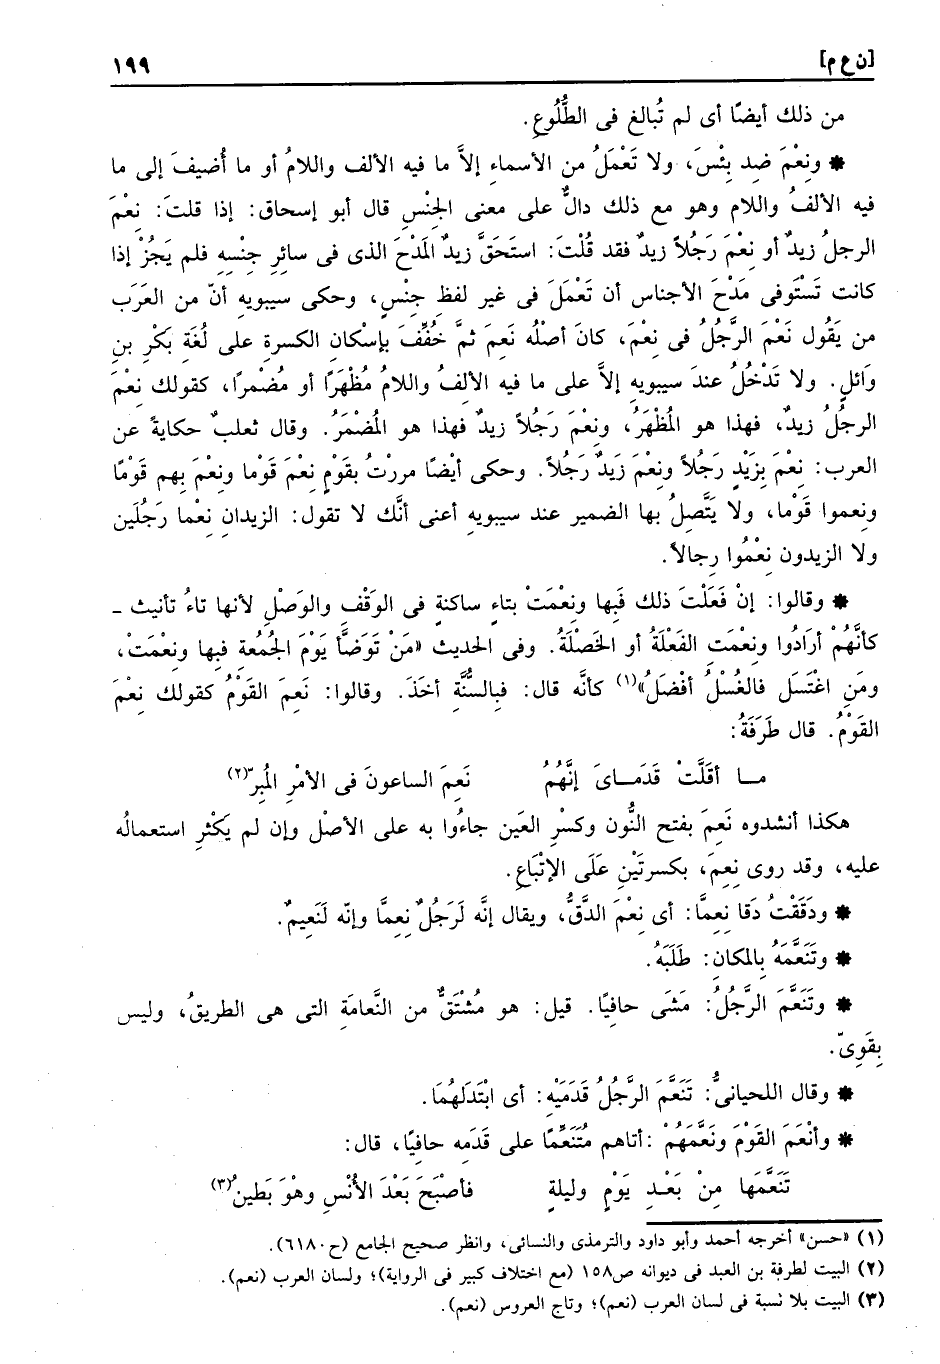 [ن ع م] ١٩٩
من ذلك أيضًا أى لم تُبالغ فى الطُّلُوعِ.
* ونِعْمَ ضِد بِئْسَ، ولا تَعْمَلُ من الأسماءِ إلاَّ ما فيه الألف واللامُ أو ما أُضيفَ إلى ما
فيه الألفُ واللام وهو مع ذلك دالٌّ على معنى الجِنْسِ قال أبو إسحاق: إذا قلتَ: نِعْمَ
الرجلُ زيدٌ أو نِعْمَ رَجُلاً زيدٌ فقد قُلْتَ: استَحَقَّ زيدٌ المَدْحَ الذى فى سائرِ جِنْسِه فلم يَجُزْ إذا
كانت تَسْتَوفى مَدْحَ الأجناس أن تَعْمَلَ فى غير لفظِ جِنْسٍ، وحكى سيبويه أنّ من العَرَب
من يَقُول نَعْمَ الرَّجُلُ فى نِعْمَ، كانَ أصْلُه نَعِمَ ثمَّ خُفِّفَ بإسْكانِ الكسرةِ على لُغَةِ بَكْرِ بنِ
وَائلٍ. ولا تَدْخُلُ عندَ سيبويه إلاَّ على ما فيه الألفُ واللامُ مُظْهَرًا أو مُضْمرًا، كقولك نِعْمَ
الرجُلُ زيدٌ، فهذا هو المُظْهَرُ، ونِعْمَ رَجُلاً زيدٌ فهذا هو المُضْمَرُ. وقال ثعلبٌ حكايةً عن
العرب: نِعْمَ بِزَيْدٍ رَجُلاً ونِعْمَ زَيدٌ رَجُلاً. وحكى أيْضًا مررْتُ بقَوْمٍ نِعْمَ قَوْما ونِعْمَ بهم قَوْمًا
ونِعموا قَوْما، ولا يَتَّصِلُ بها الضمير عند سيبويهِ أعنى أنَّك لا تقول: الزيدانِ نِعْما رَجُلَين
ولا الزيدون نِعْمُوا رِجالاً.
* وقالوا: إنْ فَعَلْتَ ذلك فَبِها ونِعْمَتْ بتاءٍ ساكنةٍ فى الوَقْفِ والوَصْلِ لأنها تاءُ تأنيث ـ
كأنَّهُمْ أرَادُوا ونِعْمَتِ الفَعْلَةُ أو الخَصْلَةُ. وفى الحديث «مَنْ تَوَضَّأ يَوْمَ الجُمُعةِ فبِها ونِعْمَتْ،
ومَنِ اغْتَسَل فالغُسْلُ أفْضَلُ»(١) كأنَّه قال: فبالسُّنَّة أخَذَ. وقالوا: نَعِمَ القَوْمُ كقولك نِعْمَ
القَوْمُ. قال طَرَفَةُ:
مــا أقَلَّتْ قَدَمــاىَ إنَّهُمُ نَعِمَ الساعونَ فى الأمْرِ المُبِرّ(٢)
هكذا أنشدوه نَعِمَ بفتح النُّون وكسْرِ العَين جاءُوا به على الأصْل وإن لم يَكْثرِ استعمالُه
عليه، وقد روى نِعِمَ، بكسرتَيْنِ عَلَى الإتْبَاعِ.
* ودَقَقْتُ دَقا نِعِمَّا: أى نِعْمَ الدَّقُّ، ويقال إنَّه لَرَجُلٌ نِعِمَّا وإنّه لَنَعِيمٌ.
* وتَنَعَّمَهُ بالمكانِ: طَلَبَهُ.
* وتَنَعَّمَ الرَّجُلُ: مَشَى حافيًا. قيل: هو مُشْتَقٌّ من النَّعامَةِ التى هى الطريقُ، وليس
بِقَوِىّ.
* وقال اللحيانىُّ: تَنَعَّمَ الرَّجُلُ قَدَمَيْهِ: أى ابْتَذَلَهُمَا.
* وأنْعَمَ القَوْمَ ونَعَّمَهُمْ: أتاهم مُتَنَعِّمًا على قَدَمِه حافِيًا، قال:
تَنَعَّمَها مِنْ بَعْـدِ يَوْمٍ وليلةٍ فأصْبَحَ بَعْدَ الأُنْسِ وهْوَ بَطينُ(٣)
(١) «حسن» أخرجه أحمد وأبو داود والترمذى والنسائى، وانظر صحيح الجامع (ح٦١٨٠).
(٢) البيت لطرفة بن العبد فى ديوانه ص١٥٨ (مع اختلاف كبير فى الرواية)؛ ولسان العرب (نعم).
(٣) البيت بلا نسبة فى لسان العرب (نعم)؛ وتاج العروس (نعم).